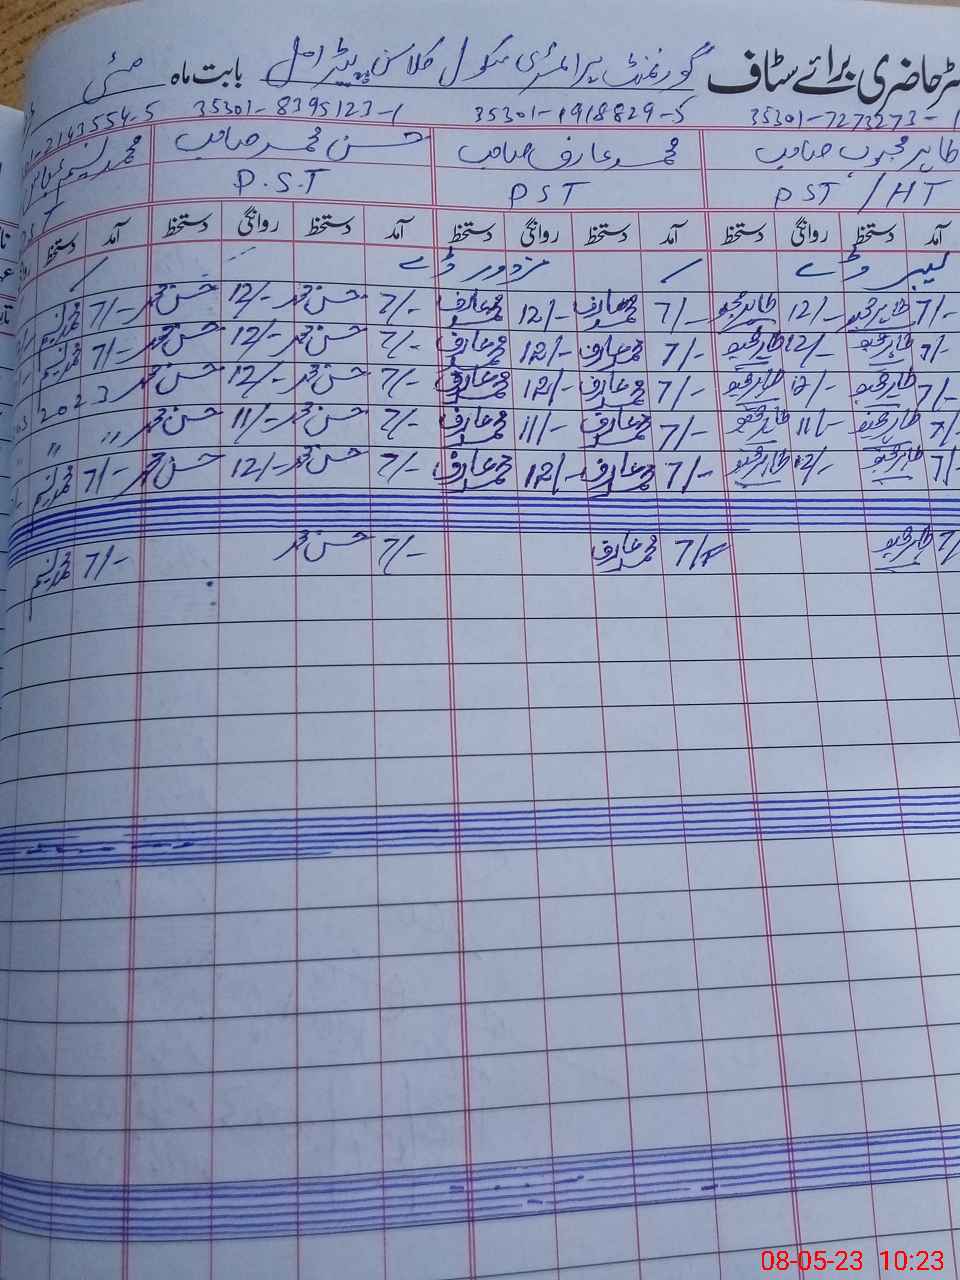 حاضری برائے سٹاف گورنمنٹ پرائمری سکول کلاسن پیٹرامل بابت ماہ مئی
35301-7273273-1 35301-1918829-5 35301-8395123-1 2143554-5
طاہر محبوب صاحب محمد عارف صاحب حسن محمد صاحب محمد نسیم عباس
PST / HT PST P.S.T
آمد دستخط روانگی دستخط آمد دستخط روانگی دستخط آمد دستخط روانگی دستخط آمد دستخط
لیبر ڈے مزدور ڈے
7/- 12/- 7/- محمد عارف 12/- محمد عارف 7/- حسن محمد 12/- حسن محمد 7/- محمد نسیم
7/- 12/- 7/- محمد عارف 12/- محمد عارف 7/- حسن محمد 12/- حسن محمد 7/- محمد نسیم
7/- 12/- 7/- محمد عارف 12/- محمد عارف 7/- حسن محمد 12/- حسن محمد 2023
7/- 11/- 7/- محمد عارف 11/- محمد عارف 7/- حسن محمد 11/- حسن محمد " "
7/- 12/- 7/- محمد عارف 12/- محمد عارف 7/- حسن محمد 12/- حسن محمد 7/- محمد نسیم
7/ 7/- محمد عارف 7/- حسن محمد 7/- محمد نسیم
08-05-23 10:23